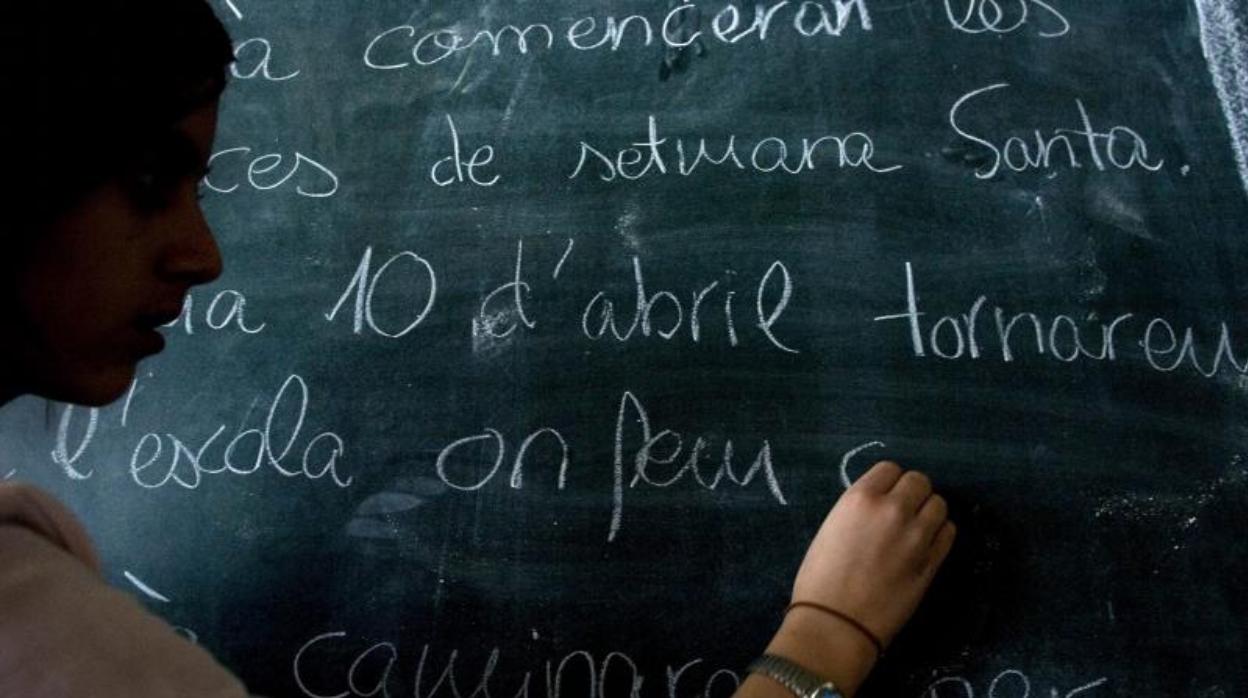 a començeran les
ces de setmana Santa.
ia 10 d'abril tornareu
l'escola on feu
caminara per